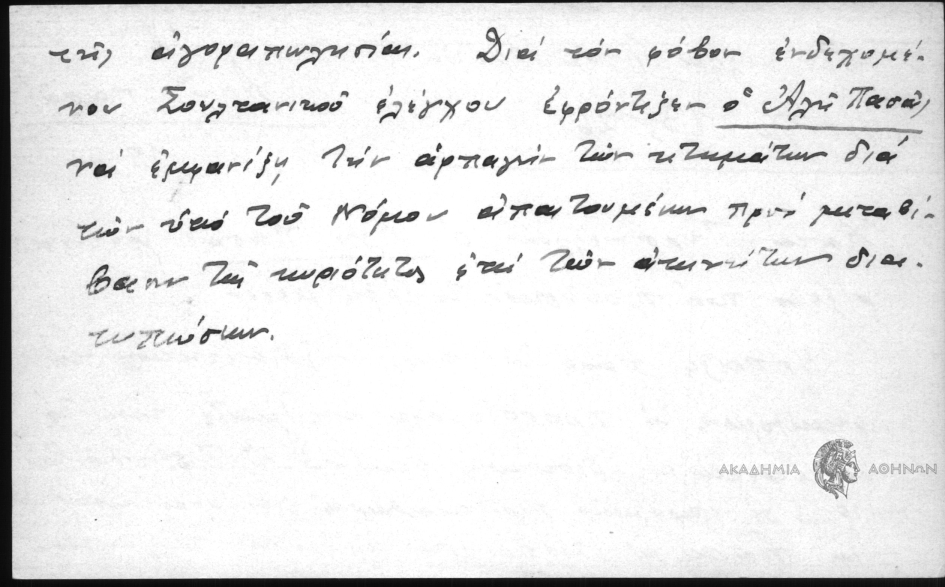 τῆς ἀγοραπωλησίας. Διά τόν φόβον ἐνδεχομέ-
νου Σουλτανικοῦ ἐλέγχου ἐφρόντιζεν ὁ Ἀλῆ Πασᾶς
νά ἐμφανίζῃ τήν ἁρπαγήν τῶν κτημάτων διά
τῶν ὑπό τοῦ Νόμου ἀπαιτουμένων πρός μεταβί-
βασιν τῆς κυριότητος ἐπί τῶν ἀκινήτων δια-
τυπώσεων.
ΑΚΑΔΗΜΙΑ ΑΘΗΝΩΝ